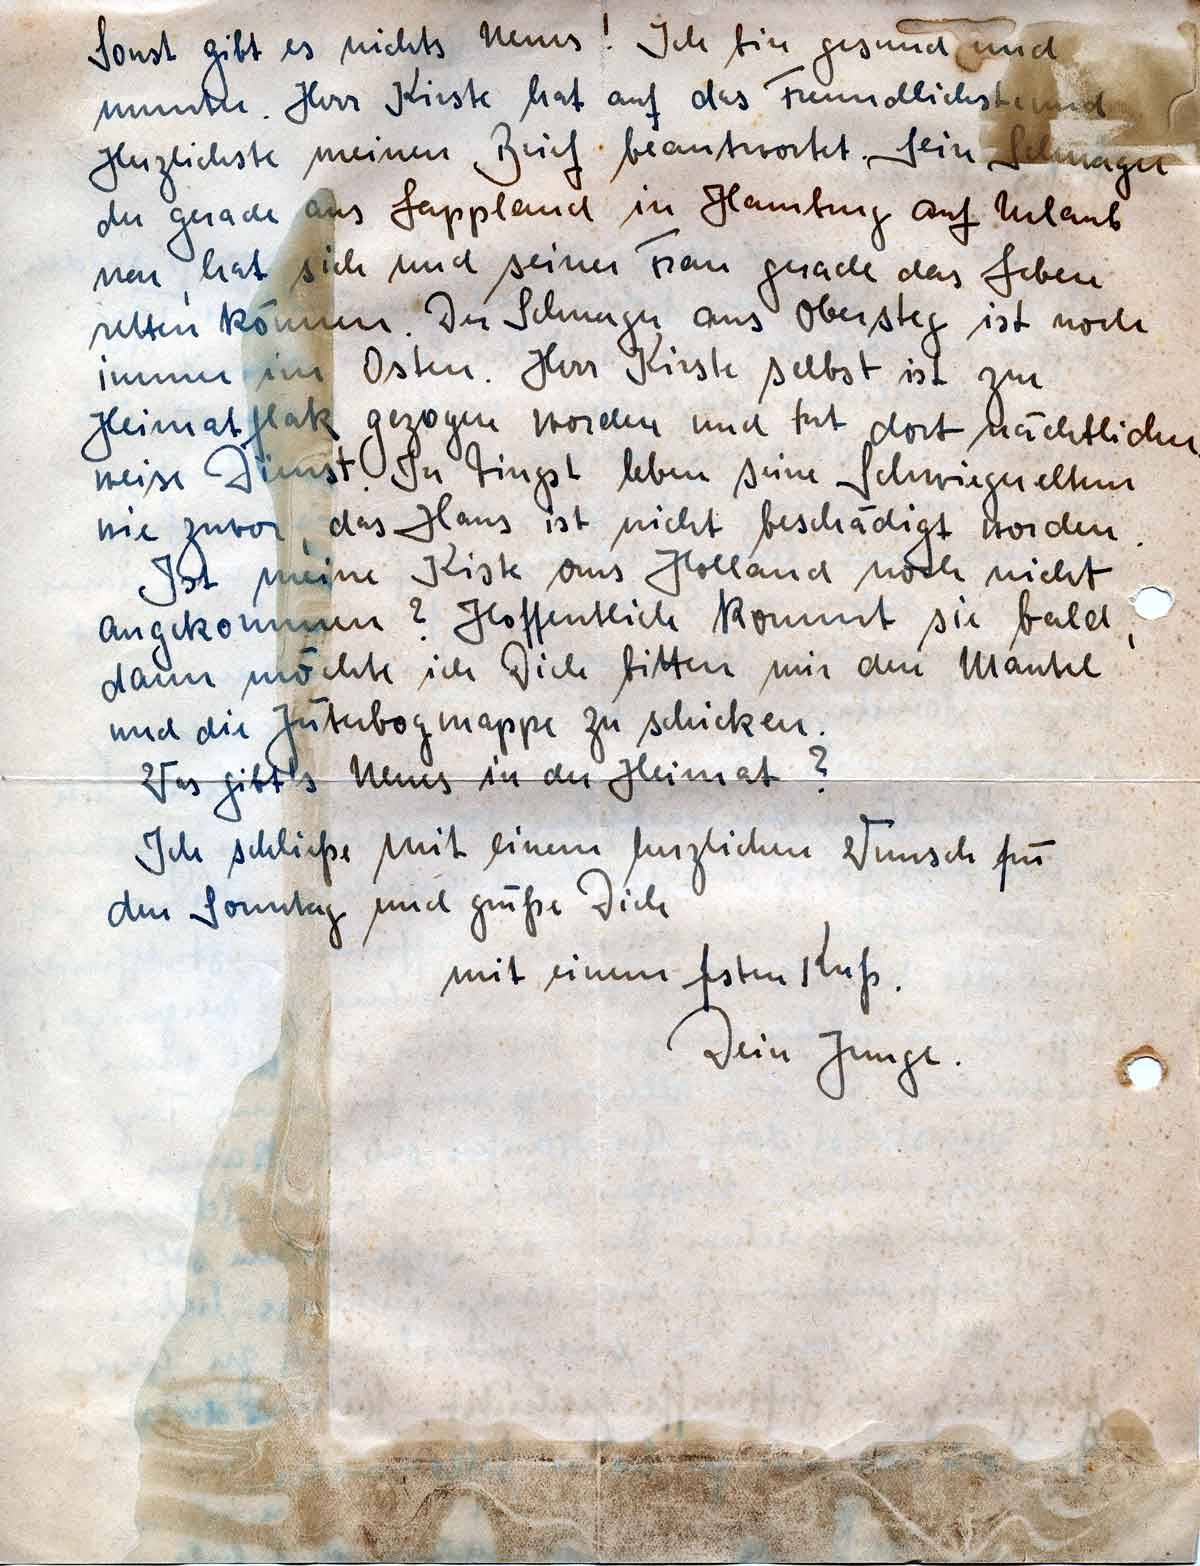 Sonst gibt es nichts Neues! Ich bin gesund und
munter. Herr Kirste hat auf das Freundlichste und
Herzlichste meinen Brief beantwortet. Sein Schwager
der gerade aus Lappland in Hamburg auf Urlaub
war, hat sich und seiner Frau gerade das Leben
retten können. Der Schwager aus Obersteg ist noch
immer im Osten. Herr Kirste selbst ist zur
Heimatflak gezogen worden und tut dort nächtlicher
weise Dienst. In Zingst leben seine Schwiegereltern
wie zuvor, das Haus ist nicht beschädigt worden.
Ist meine Kiste aus Holland noch nicht
angekommen? Hoffentlich kommt sie bald,
dann möchte ich Dich bitten mir den Mantel
und die Jüterbogmappe zu schicken.
Was gibt's Neues in der Heimat?
Ich schließe mit einem herzlichen Wunsch für
den Sonntag und grüße Dich
mit einem festen Kuß.
Dein Junge.